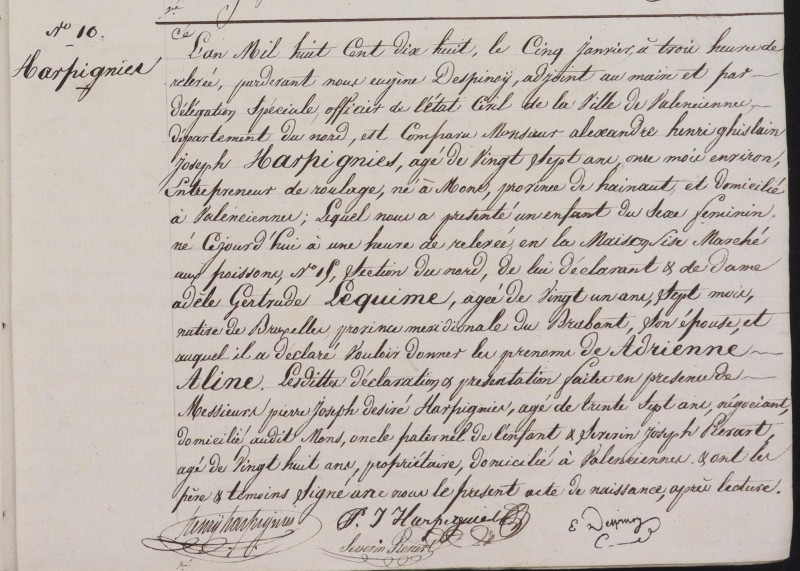 N.o 10.
Harpignies
L'an Mil huit Cent dix huit, le Cinq janvier, à trois heures de
relevée, pardevant nous eugène Despinoy, adjoint au maire et par
délégation Spéciale, officier de l'état Civil de la Ville de Valenciennes,
département du nord, est Comparu Monsieur alexandre henri ghislain
joseph Harpignies, agé de Vingt Sept ans, onze mois environ,
Entrepreneur de roulage, né à Mons, province de hainaut, et domicilié
à Valenciennes; Lequel nous a presenté un enfant du Sexe feminin,
né Cejourd'hui à une heure de relevée, en la Maison Sise Marché
aux poissons, N.o 15, Section du nord, de lui déclarant & de dame
adèle Gertrude Lequime, agée de Vingt un ans, Sept mois,
native de Bruxelles province meridionale du Brabant, Son épouse, et
auquel il a déclaré Vouloir donner les prenoms de Adrienne
Aline. Lesdittes déclaration & presentation faites en presence de
Messieurs pierre Joseph desiré Harpignies, agé de trente Sept ans, négociant,
domicilié audit Mons, oncle paternel de l'enfant & Severin Joseph Pierart,
agé de Vingt huit ans, propriétaire, domicilié à Valenciennes. & ont les
père & temoins Signé avec nous le present acte de naissance, après lecture.
henry harpignies
P. J Harpignies
E. Despinoy
Severin Pierart